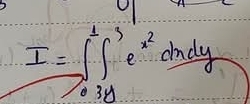 I = ∫₀¹ ∫₃ᵧ³ e^{x²} dx dy